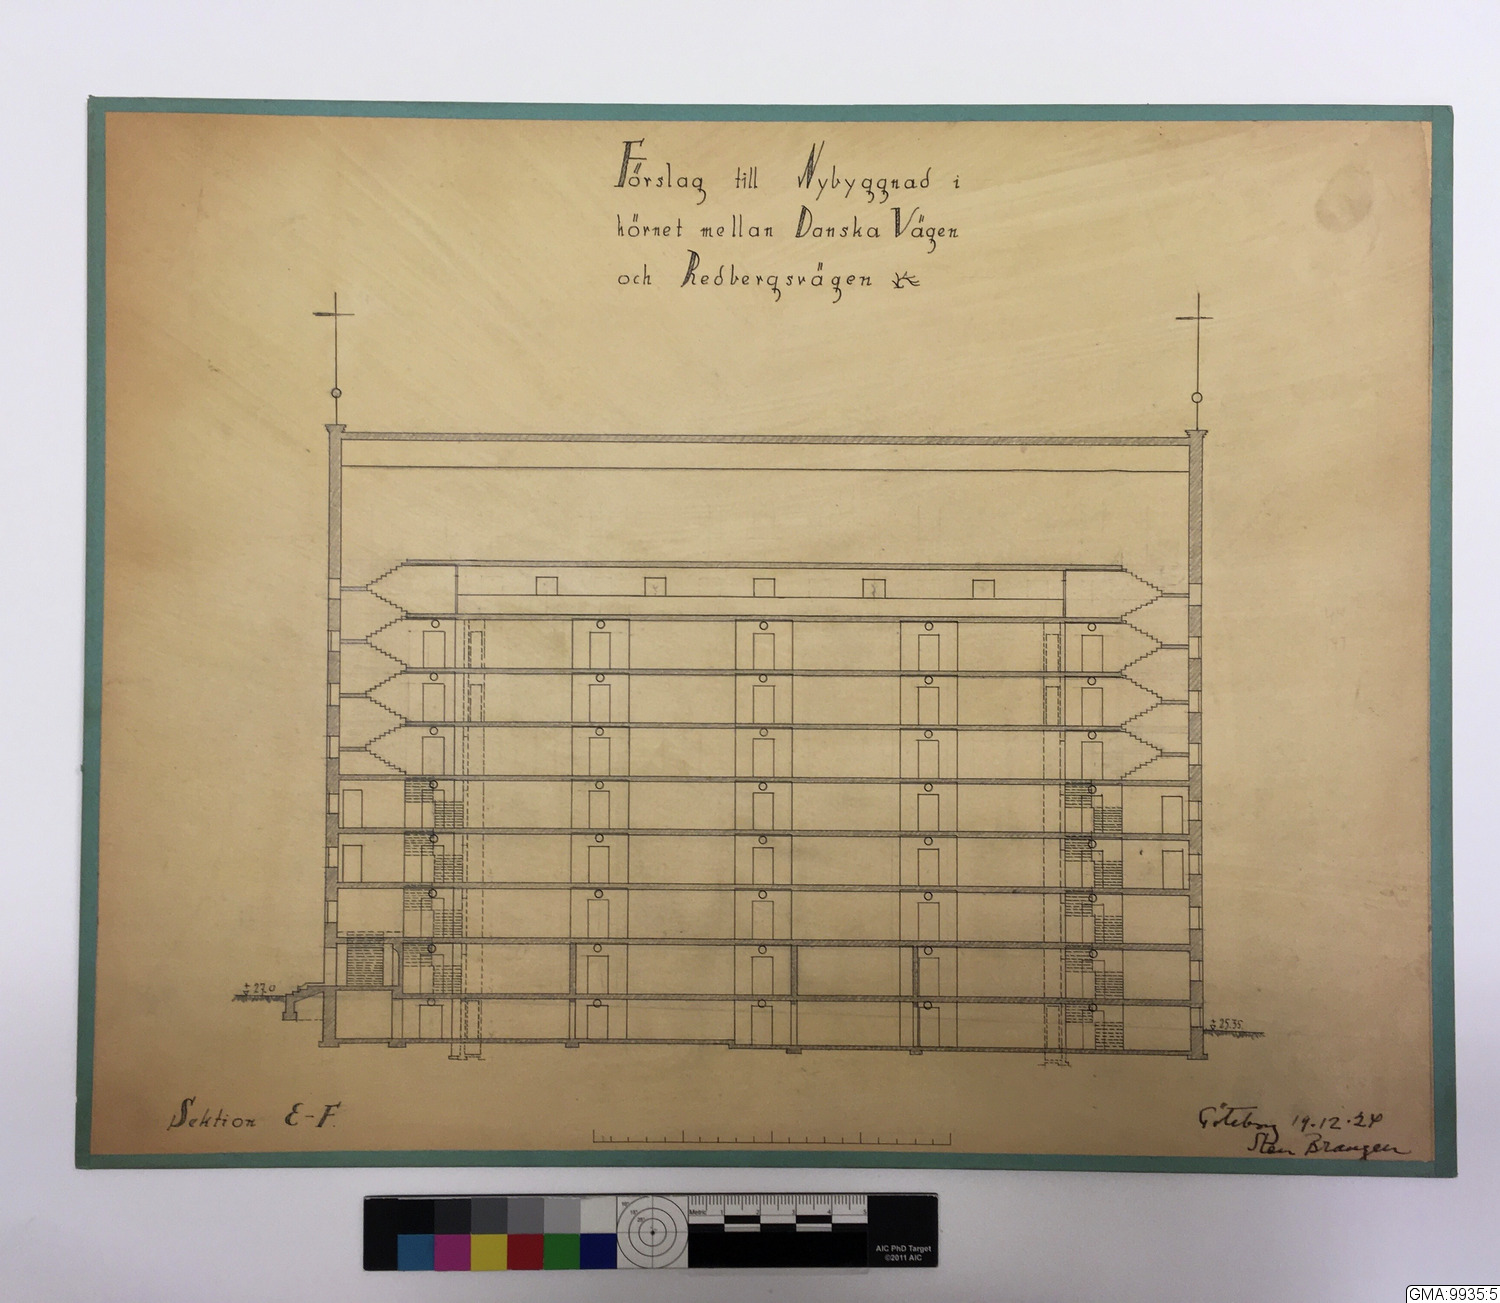 Förslag till Nybyggnad i
hörnet mellan Danska Vägen
och Redbergsvägen
± 27.0
± 25.35
Sektion E-F.
Göteborg 19.12.24
Sten Brangen
Metric 1 2 3 4 5
AIC PhD Target
©2011 AIC
GMA:9935:5